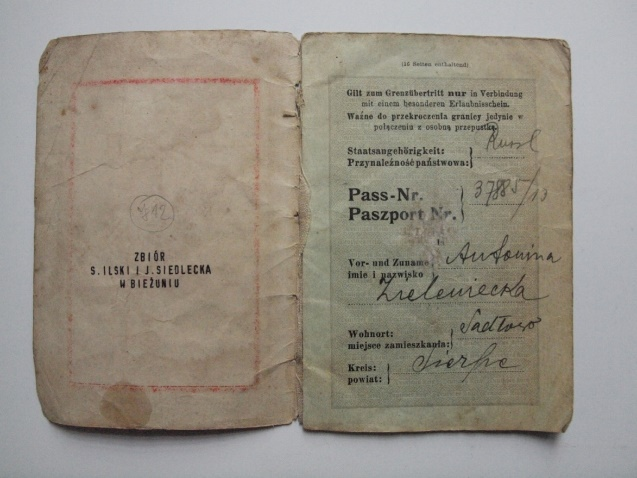 ZBIÓR
S. ILSKI I J. SIEDLECKA
W BIEŻUNIU
(16 Seiten enthaltend)
Gilt zum Grenzübertritt nur in Verbindung
mit einem besonderen Erlaubnisschein.
Ważne do przekroczenia granicy jedynie w
połączeniu z osobną przepustką.
Staatsangehörigkeit:
Przynależność państwowa:
Russl
Pass-Nr.
Paszport Nr.
37885/13
Vor- und Zuname
imię i nazwisko
Antonina
Zieleniecka
Wohnort:
miejsce zamieszkania:
Sadłowo
Kreis:
powiat:
Sierpc